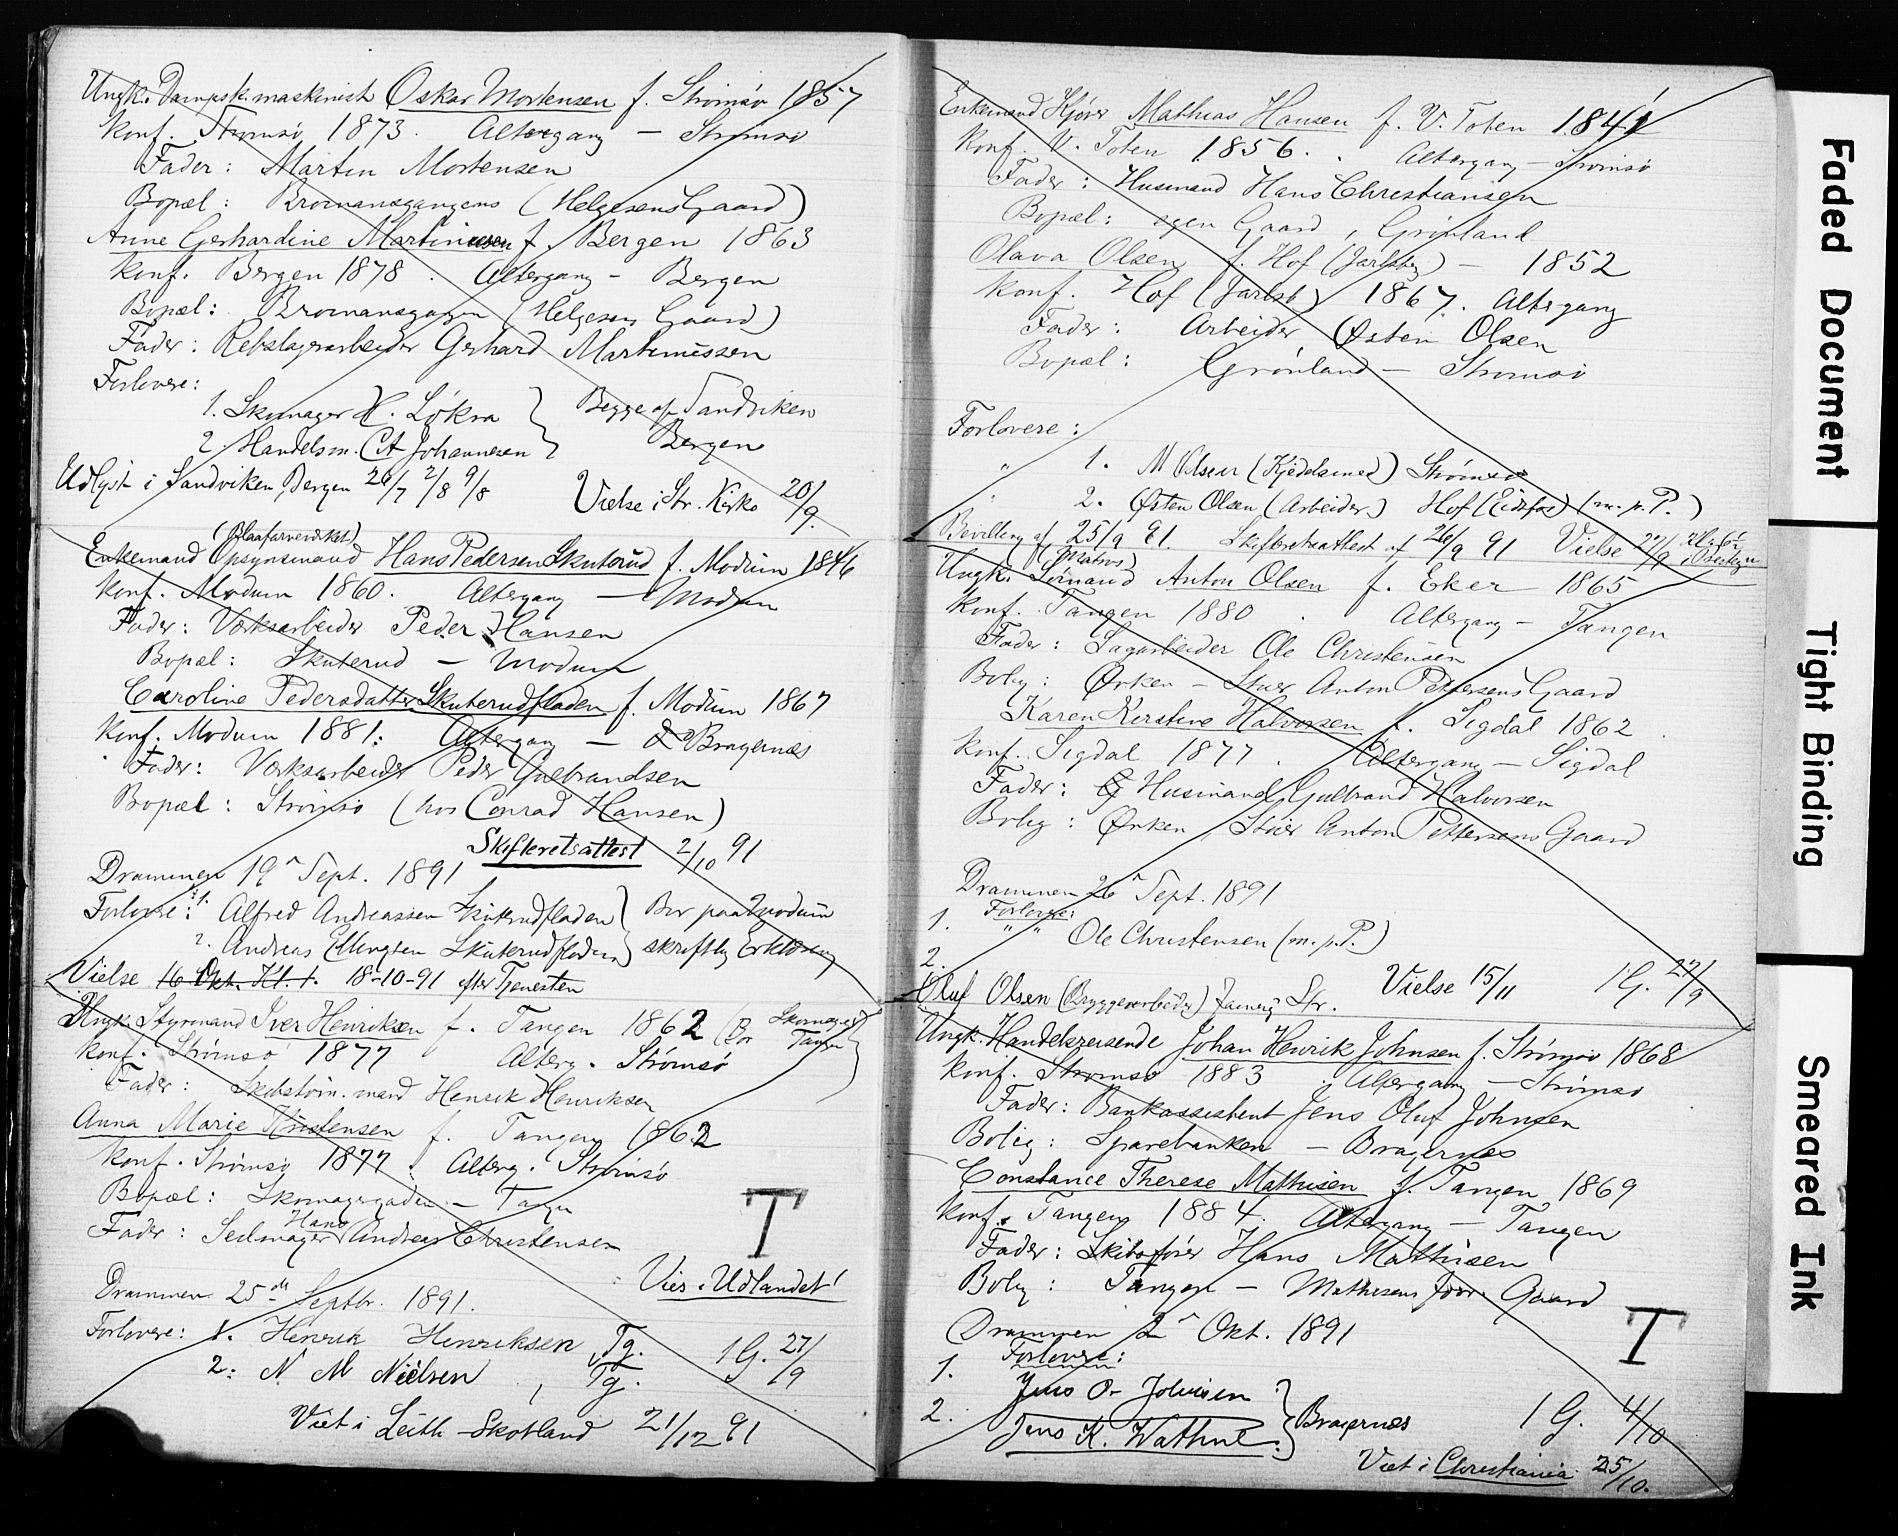 Ungk. Dampsk.maskinist Oskar Mortensen f. Strømsø 1857
Konf. Strømsø 1873. Altergang – Strømsø
Fader: Martin Mortensen
Bopæl: Bromansgangens (Helgesens Gaard)
Anne Gerhardine Martinussen f. Bergen 1863
Konf. Bergen 1878. Altergang – Bergen
Bopæl: Bromansgangen (Helgesens Gaard)
Fader: Rebslagerarbeider Gerhard Martinussen
Forlovere:
1. Skomager H. Løkra } Begge af Sandviken
2 Handelsm. CA Johannesen } Bergen
Udlyst i Sandviken, Bergen 26/7 2/8 9/8 Vielse i Str. Kirke 20/9.
(Blaafarveværket)
Enkemand Opsynsmand Hans Pedersen Skuterud f. Modum 1846
Konf. Modum 1860. Altergang – Modum
Fader: Værksarbeider Peder Hansen
Bopæl: Skuterud – Modum
Caroline Pedersdatter Skuterudfladen f. Modum 1867
Konf. Modum 1881: Altergang – Bragernæs
Fader: Værksarbeider Peder Gulbrandsen
Bopæl: Strømsø (hos Conrad Hansen)
Skifteretsattest 2/10 91
Drammen 19 Sept. 1891
Forlovere: 1. Alfred Andreassen Skuterudfladen } Bor paa Modum
2. Andreas Ellingsen Skuterudfladen } skriftlig Erklæring
Vielse 16 Okt. Kl. 1. 18-10-91 efter Tjenesten
Ungk. Styrmand Iver Henriksen f. Tangen 1862 (Bor Skomagerg Tangen)
Konf. Strømsø 1877 Alterg. Strømsø
Fader: Skibstøm.mand Henrik Henriksen
Anna Marie Kristensen f. Tangen 1862
Konf. Strømsø 1877. Alterg. Strømsø
Bopæl: Skomagergaden – Tangen
Fader: Seilmager Hans Andreas Christensen
T
Vies i Udlandet!
Drammen 25de Septbr. 1891.
Forlovere: 1. Henrik Henriksen, Tg. 1 G. 27/9
2: N M Nielsen, Tg.
Viet i Leith – Skotland 21/12 91
Enkemand Kjører Mathias Hansen f. V. Toten 1841
Konf. V. Toten 1856. Altergang – Strømsø
Fader: Husmand Hans Christiansen
Bopæl: egen Gaard, Grønland
Olava Olsen f. Hof (Jarlsberg) – 1852
Konf. Hof (Jarlsb) 1867. Altergang
Fader: Arbeider Østen Olsen
Bopæl: Grønland – Strømsø
Forlovere:
" 1. M Olsen (Kjedelsmed) Strømsø
" 2. Østen Olsen (Arbeider) Hof (Eidsfos) (m. p. P.)
Bevilling af 25/9 91. Skifteretsattest af 26/9 91 Vielse 27/9
(Matros)
Ungk. Sømand Anton Olsen f. Eker 1865
Konf. Tangen 1880. Altergang – Tangen
Fader: Sagarbeider Ole Christensen
Bolig: Ørken – Stuer Anton Pettersens Gaard
Karen Kirstine Halvorsen f. Sigdal 1862
Konf. Sigdal 1877. Altergang – Sigdal
Fader: Husmand Gulbrand Halvorsen
Bolig: Ørken Stuer Anton Pettersens Gaard
Drammen 26 Sept. 1891
Forlovere:
1. " " Ole Christensen (m. p. P.)
2.
Oluf Olsen (Bryggerarbeider) Str. Vielse 15/11 1 G. 27/9
Ungk. Handelsreisende Johan Henrik Johnsen f. Strømsø 1868
Konf. Strømsø 1883. Altergang – Strømsø
Fader: Bankassistent Jens Oluf Johnsen
Bolig: Sparebanken – Bragernæs
Constance Therese Mathisen f. Tangen 1869
Konf. Tangen 1884. Altergang – Tangen
Fader: Skibsfører Hans Mathisen
Bolig: Tangen – Mathisens Gaard
Drammen 2 Okt. 1891
T
Forlovere:
1. Jens O. Johnsen }
2. Jens K. Wathne } Bragernæs 1 G. 4/10
Viet i Christiania 25/10.
Faded Document
Tight Binding
Smeared Ink